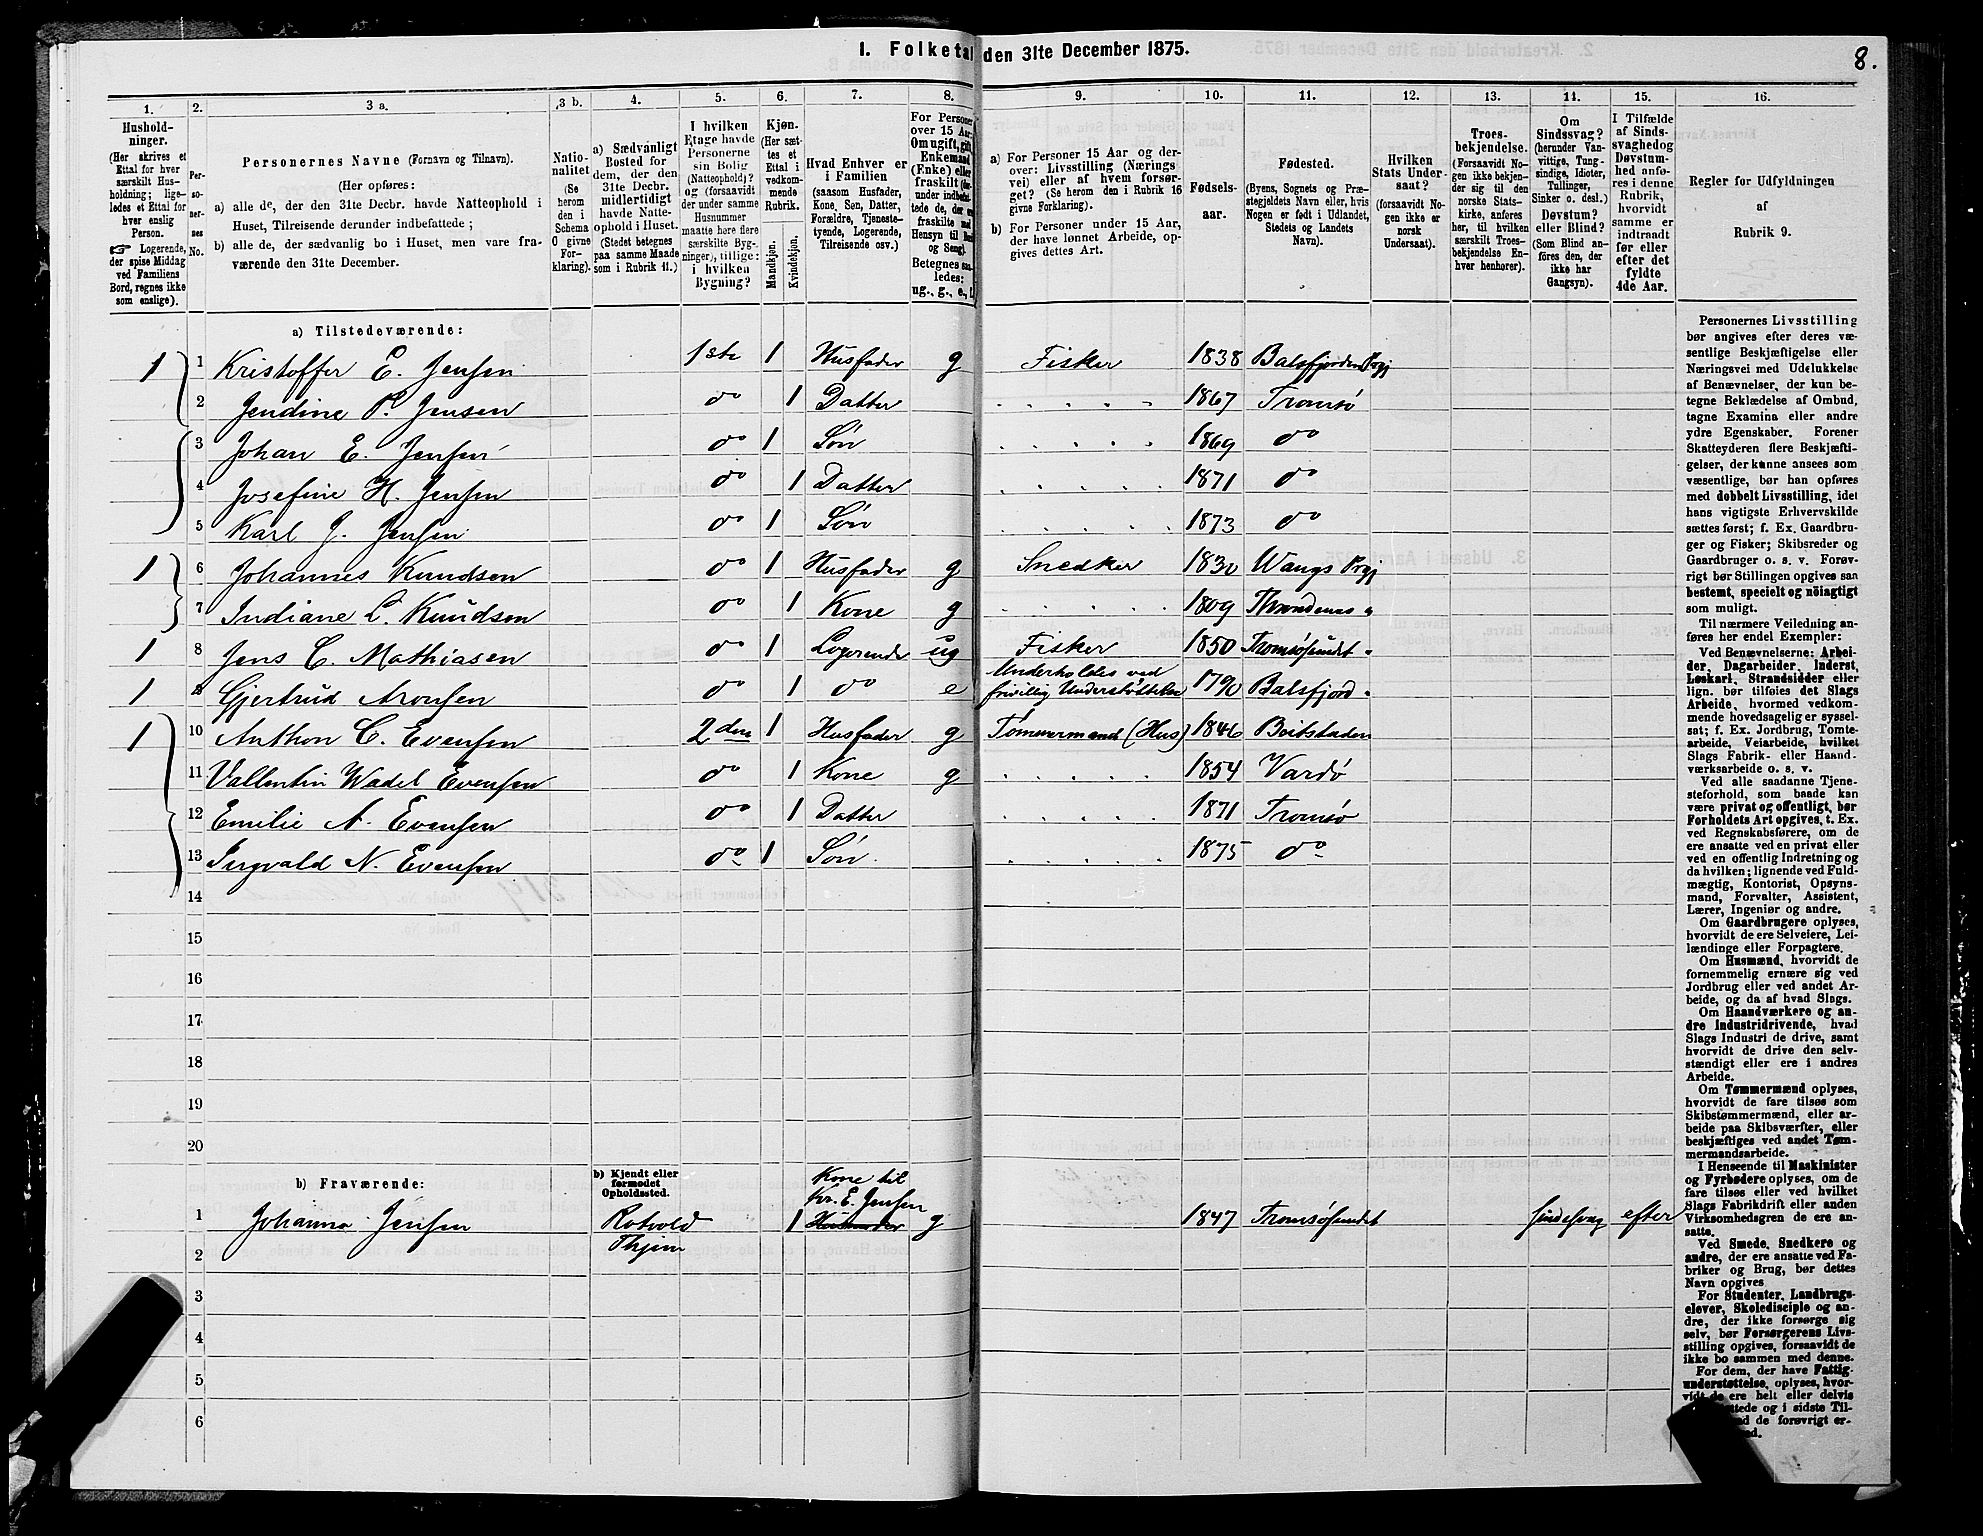 8.
1. Folketal den 31te December 1875.
1. 2. 3 a. 3 b. 4. 5. 6. 7. 8. 9. 10. 11. 12. 13. 14. 15. 16.
Husholdninger. (Her skrives et Ettal for hver særskilt Husholdning; ligeledes et Ettal for hver enslig Person. Logerende, der spise Middag ved Familiens Bord, regnes ikke som enslige).
Personernes No.
Personernes Navne (Fornavn og Tilnavn).
(Her opføres:
a) alle de, der den 31te Decbr. havde Natteophold i Huset, Tilreisende derunder indbefattede;
b) alle de, der sædvanlig bo i Huset, men vare fraværende den 31te December.
Nationalitet (Se herom den i Schema O givne Forklaring).
a) Sædvanligt Bosted for dem, der den 31te Decbr. midlertidigt havde Natteophold i Huset. (Stedet betegnes paa samme Maade som i Rubrik 11.)
I hvilken Etage havde Personerne sin Bolig (Natteophold)? og (forsaavidt der under samme Husnummer maatte høre flere særskilte Bygninger), tillige: i hvilken Bygning?
Kjøn. (Her sættes et Ettal i vedkommende Rubrik.
Mandkjøn. Kvindekjøn.
Hvad Enhver er i Familien (saasom Husfader, Kone, Søn, Datter, Forældre, Tjenestetyende, Logerende, Tilreisende osv.)
For Personer over 15 Aar: Om ugift, gift, Enkemand (Enke) eller fraskilt
Betegnes saaledes: ug., g., e., f.
a) For Personer 15 Aar og derover: Livsstilling (Næringsvei) eller af hvem forsørget? (Se herom den i Rubrik 16 givne Forklaring).
b) For Personer under 15 Aar, der have lønnet Arbeide, opgives dettes Art.
Fødselsaar.
Fødested. (Byens, Sognets og Præstegjeldets Navn, eller, hvis Nogen er født i Udlandet, Stedets og Landets Navn).
Hvilken Stats Undersaat? (forsaavidt Nogen ikke er norsk Undersaat).
Troesbekjendelse. (Forsaavidt Nogen ikke bekjender sig til den norske Statskirke, anføres her, til hvilken særskilt Troesbekjendelse Enhver henhører).
Om Sindssvag? (herunder Vanvittige, Tungsindige, Idioter, Tullinger, Sinker o. desl.) Døvstum? eller Blind? (Som Blind anføres den, der ikke har Gangsyn).
I Tilfælde af Sindssvaghed og Døvstumhed anføres i denne Rubrik, hvorvidt samme er indtraadt før eller efter det fyldte 4de Aar.
Regler for Udfyldningen af Rubrik 9.
a) Tilstedeværende:
1 1 Kristoffer E. Jensen 1ste 1 Husfader g Fisker 1838 Balsfjorden Prgj
2 Jendine P. Jensen do 1 Datter 1867 Tromsø
3 Johan E. Jensen do 1 Søn 1869 do
4 Josefine H. Jensen do 1 Datter 1871 do
5 Karl J. Jensen do 1 Søn 1873 do
1 6 Johannes Knudson do 1 Husfader g Snedker 1830 Wangs Prgj
7 Indiane L. Knudson do 1 Kone g 1809 Throndenes "
1 8 Jens C. Mathiasen do 1 Logerende ug Fisker 1850 Tromsøsundet "
1 9 Gjertrud Aronsen do 1 do e Underholdes ved frivillig Understøttelse 1790 Balsfjord "
1 10 Anthon C. Evensen 2den 1 Husfader g Tømmermand (Hus) 1846 Beitstaden
11 Vallentin Wadel Evensen do 1 Kone g 1854 Vardø
12 Emilie A. Evensen do 1 Datter 1871 Tromsø
13 Ingvald N. Evensen do 1 Søn. 1875 do
14
15
16
17
18
19
20
b) Fraværende:
b) Kjendt eller formodet Opholdssted.
Kone til
Kr. E. Jensen
1 Johanna Jensen Rotvold 1 Husmoder g 1847 Tromsøsundet Sindssvag efter
2 Thjem
3
4
5
6
Personernes Livsstilling
bør angives efter deres væ-
sentlige Beskjæftigelse eller
Næringsvei med Udelukkelse
af Benævnelser, der kun be-
tegne Beklædelse af Ombud,
tagne Examina eller andre
ydre Egenskaber. Forener
Skatteyderen flere Beskjæfti-
gelser, der kunne ansees som
væsentlige, bør han opføres
med dobbelt Livsstilling, idet
hans vigtigste Erhvervskilde
sættes først; f. Ex. Gaardbru-
ger og Fisker; Skibsreder og
Gaardbruger o. s. v. Forøv-
rigt bør Stillingen opgives saa
bestemt, specielt og nöiagtigt
som muligt.
Til nærmere Veiledning an-
føres her endel Exempler:
Ved Benævnelserne: Arbei-
der, Dagarbeider, Inderst,
Løskarl, Strandsidder eller
lign. bør tilføies det Slags
Arbeide, hvormed vedkom-
mende hovedsagelig er syssel-
sat; f. Ex. Jordbrug, Tomte-
arbeide, Veiarbeide, hvilket
Slags Fabrik- eller Haand-
værksarbeide o. s. v.
Ved alle saadanne Tjene-
steforhold, som baade kan
være privat og offentligt, bør
Forholdets Art opgives, t. Ex.
ved Regnskabsførere, om de
ere ansatte ved en privat eller
ved en offentlig Indretning og
da hvilken; lignende ved Fuld-
mægtig, Kontorist, Opsyns-
mand, Forvalter, Assistent,
Lærer, Ingeniør og andre.
Om Gaardbrugere oplyses,
hvorvidt de ere Selveiere, Lei-
lændinge eller Forpagtere.
Om Husmænd, hvorvidt de
fornemmelig ernære sig ved
Jordbrug eller ved andet Ar-
beide, og da af hvad Slags.
Om Haandværkere og an-
dre Industridrivende, hvad
Slags Industri de drive, samt
hvorvidt de drive den selv-
stændigt eller ere i andres
Arbeide.
Om Tømmermænd oplyses,
hvorvidt de fare tilsøs som
Skibstømmermænd, eller ar-
beide paa Skibsværfter, eller
beskjæftiges ved andet Tøm-
mermandsarbeide.
I Henseende til Maskinister
og Fyrbødere oplyses, om de
fare tilsøs eller ved hvilket
Slags Fabrikdrift eller anden
Virksomhedsgren de ere an-
satte.
Ved Smede, Snedkere og
andre, der ere ansatte ved Fa-
briker og Brug, bør dettes
Navn opgives
For Studenter, Landbrugs-
elever, Skoledisciple og an-
dre, der ikke forsørge sig
selv, bør Forsørgerens Livs-
stilling opgives, forsaavidt de
ikke bo sammen med denne.
For dem, der have Fattig-
understøttelse, oplyses, hvor-
vidt de ere helt eller delvis
og i sidste Til-
de forøvrigt er-